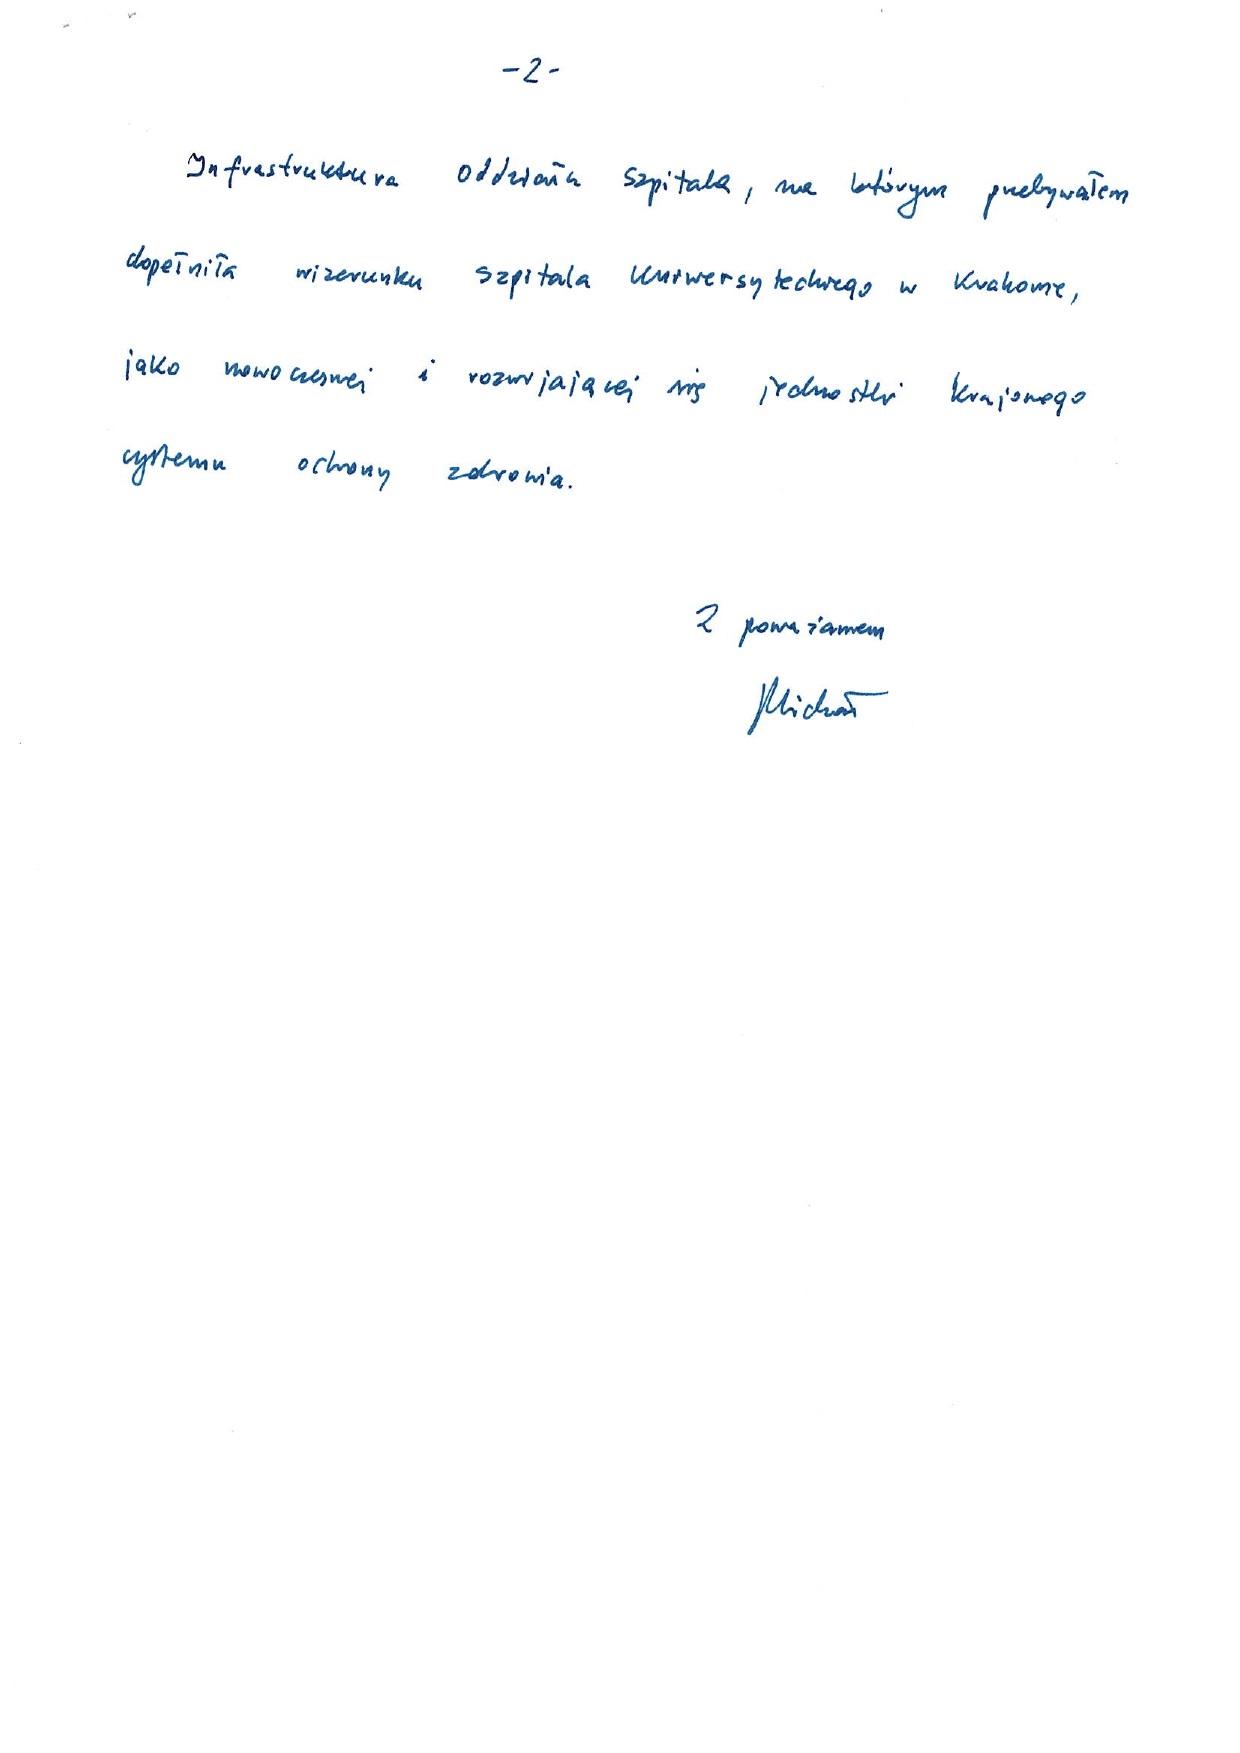 -2-
Infrastruktura oddziału szpitala, na którym przebywałem
dopełniła wizerunku szpitala Uniwersyteckiego w Krakowie,
jako nowoczesnej i rozwijającej się jednostki krajowego
systemu ochrony zdrowia.
Z poważaniem
Michał